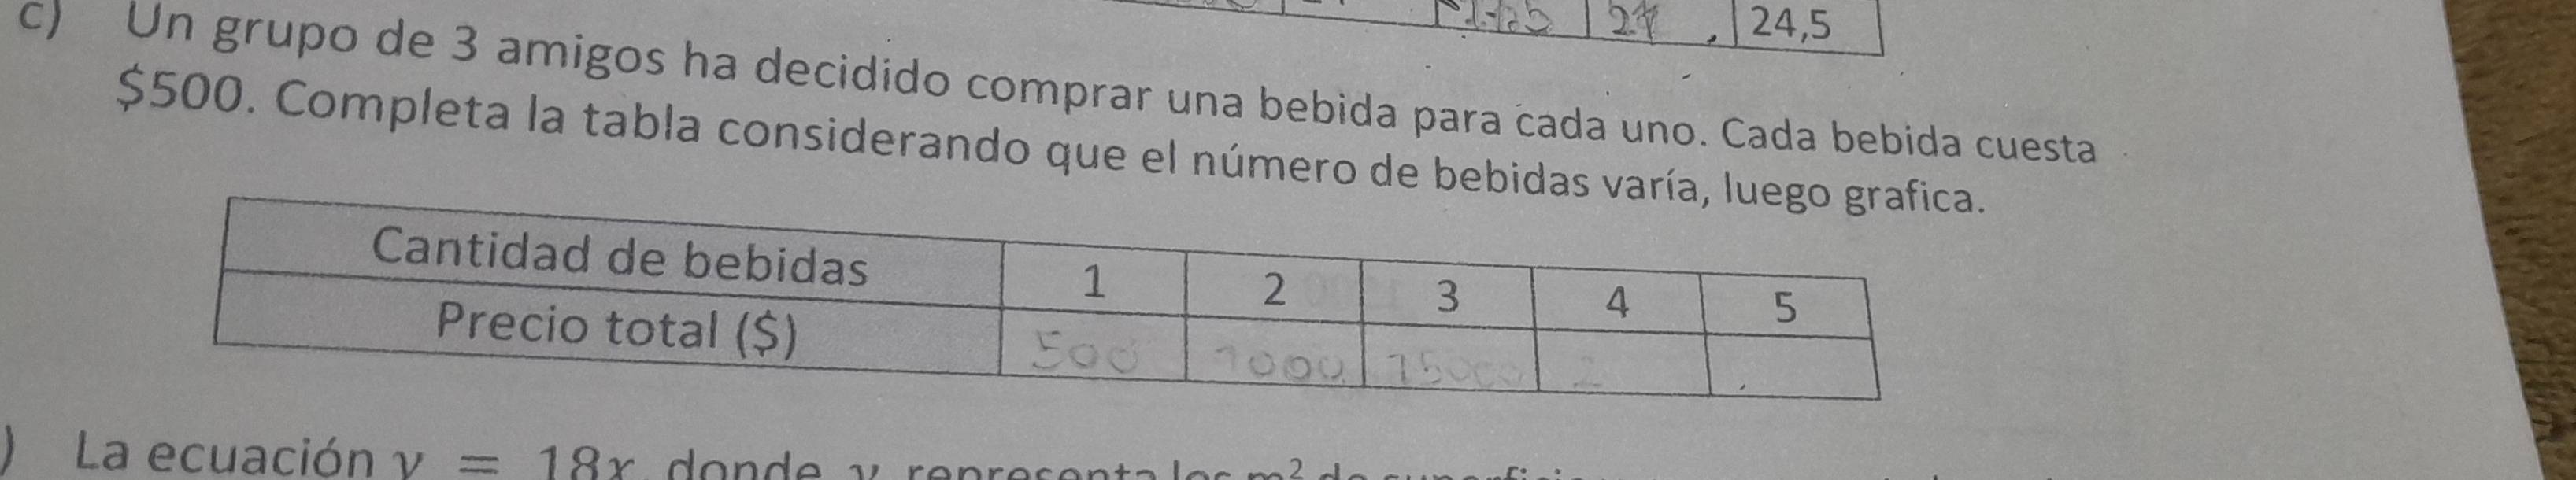 24,5
c) Un grupo de 3 amigos ha decidido comprar una bebida para cada uno. Cada bebida cuesta
$500. Completa la tabla considerando que el número de bebidas varía, luego grafica.
Cantidad de bebidas 1 2 3 4 5
Precio total ($) 500 1000
) La ecuación y = 18x donde y representa los m² de